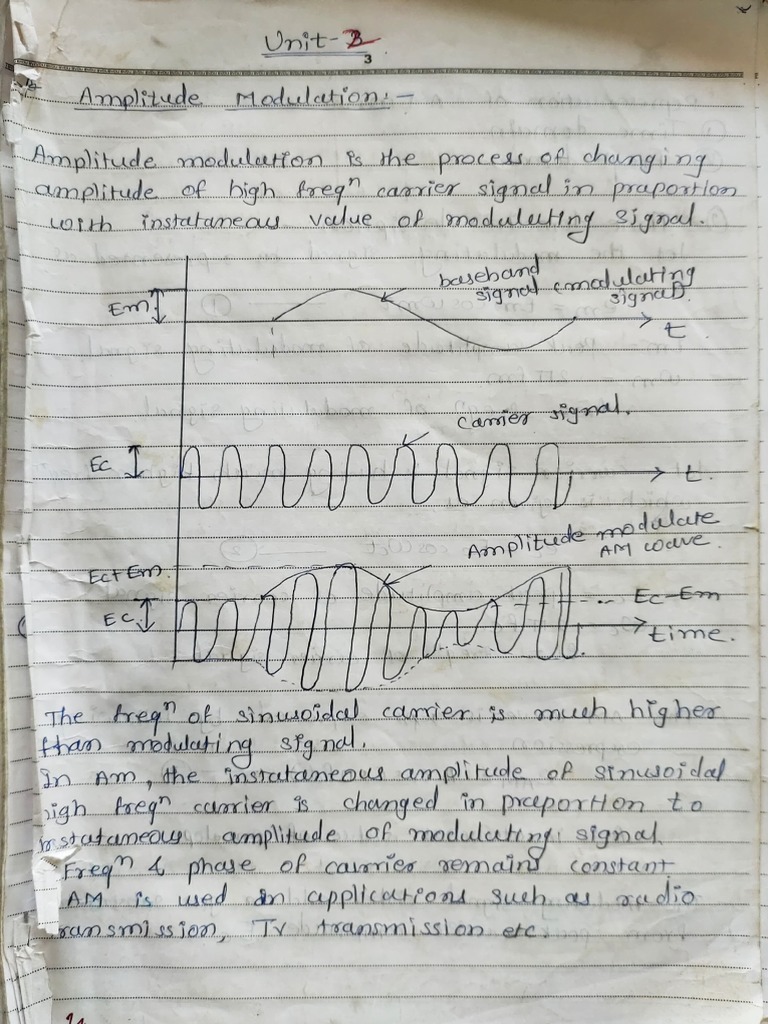 Unit-3
3
Amplitude Modulation:-
Amplitude modulation is the process of changing
amplitude of high freqⁿ carrier signal in praportion
with instataneous value of modulating signal.
baseband
signal (modulating
signal).
Em
t
Carrier signal.
Ec
t.
Amplitude modulate
AM wave.
Ec+Em.
Ec-Em
Ec
time.
The freqⁿ of sinusoidal carrier is much higher
than modulating signal.
In Am, the instataneous amplitude of sinusoidal
high freqⁿ carrier is changed in praportion to
instataneous amplitude of modulating signal.
Freqⁿ & phase of carrier remains constant
AM is used in applications such as radio
ransmission, Tv transmission etc.